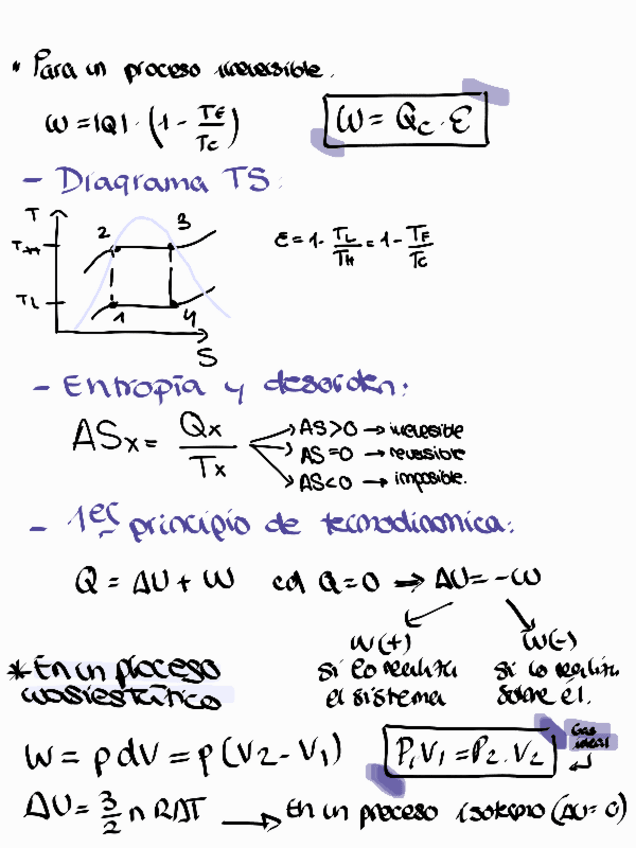 * Para un proceso irreversible.
W = |Q| · (1 - TF/TC)  W = QC · Ɛ
- Diagrama TS:
T
2 3
TH
TL
1 4
S
Ɛ = 1 - TL/TH = 1 - TF/TC
- Entropía y desorden:
ΔSx = Qx/Tx
ΔS>0 → irreversible
ΔS=0 → reversible
ΔS<0 → imposible.
- 1er principio de termodinámica:
Q = ΔU + W  Q=0 ⇒ ΔU = -W
W(+) W(-)
si lo realiza si lo realiza
el sistema sobre él.
* En un proceso
cuasiestático
W = p dV = p (V2 - V1)  P1 V1 = P2 . V2
Gas
ideal
ΔU = 3/2 n RΔT → En un proceso isotermo (ΔU = 0)